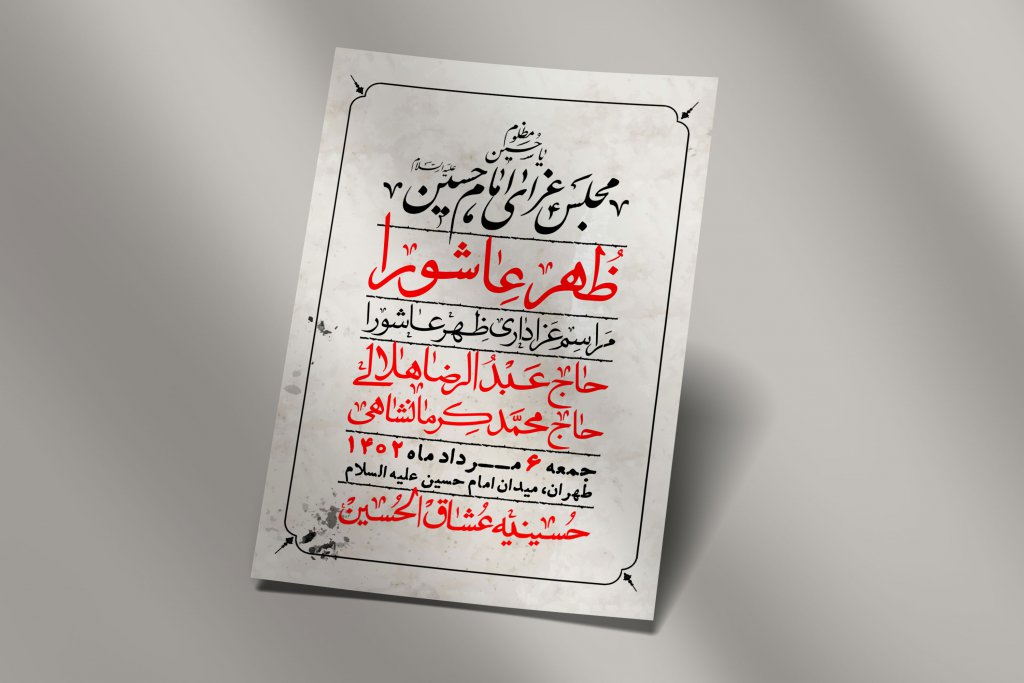 یا حسین مظلوم
مجلس عزای امام حسین علیه السلام
ظُهر عاشورا
مَراسِم عَزاداری ظِهر عاشورا
حاج عَبدُالرضا هلالی
حاج محمّد کِرمانشاهی
جمعه ۶ مــرداد ماه ۱۴۰۲
طهران، میدان امام حسین علیه السلام
حُسینیه عُشاق الحُسین